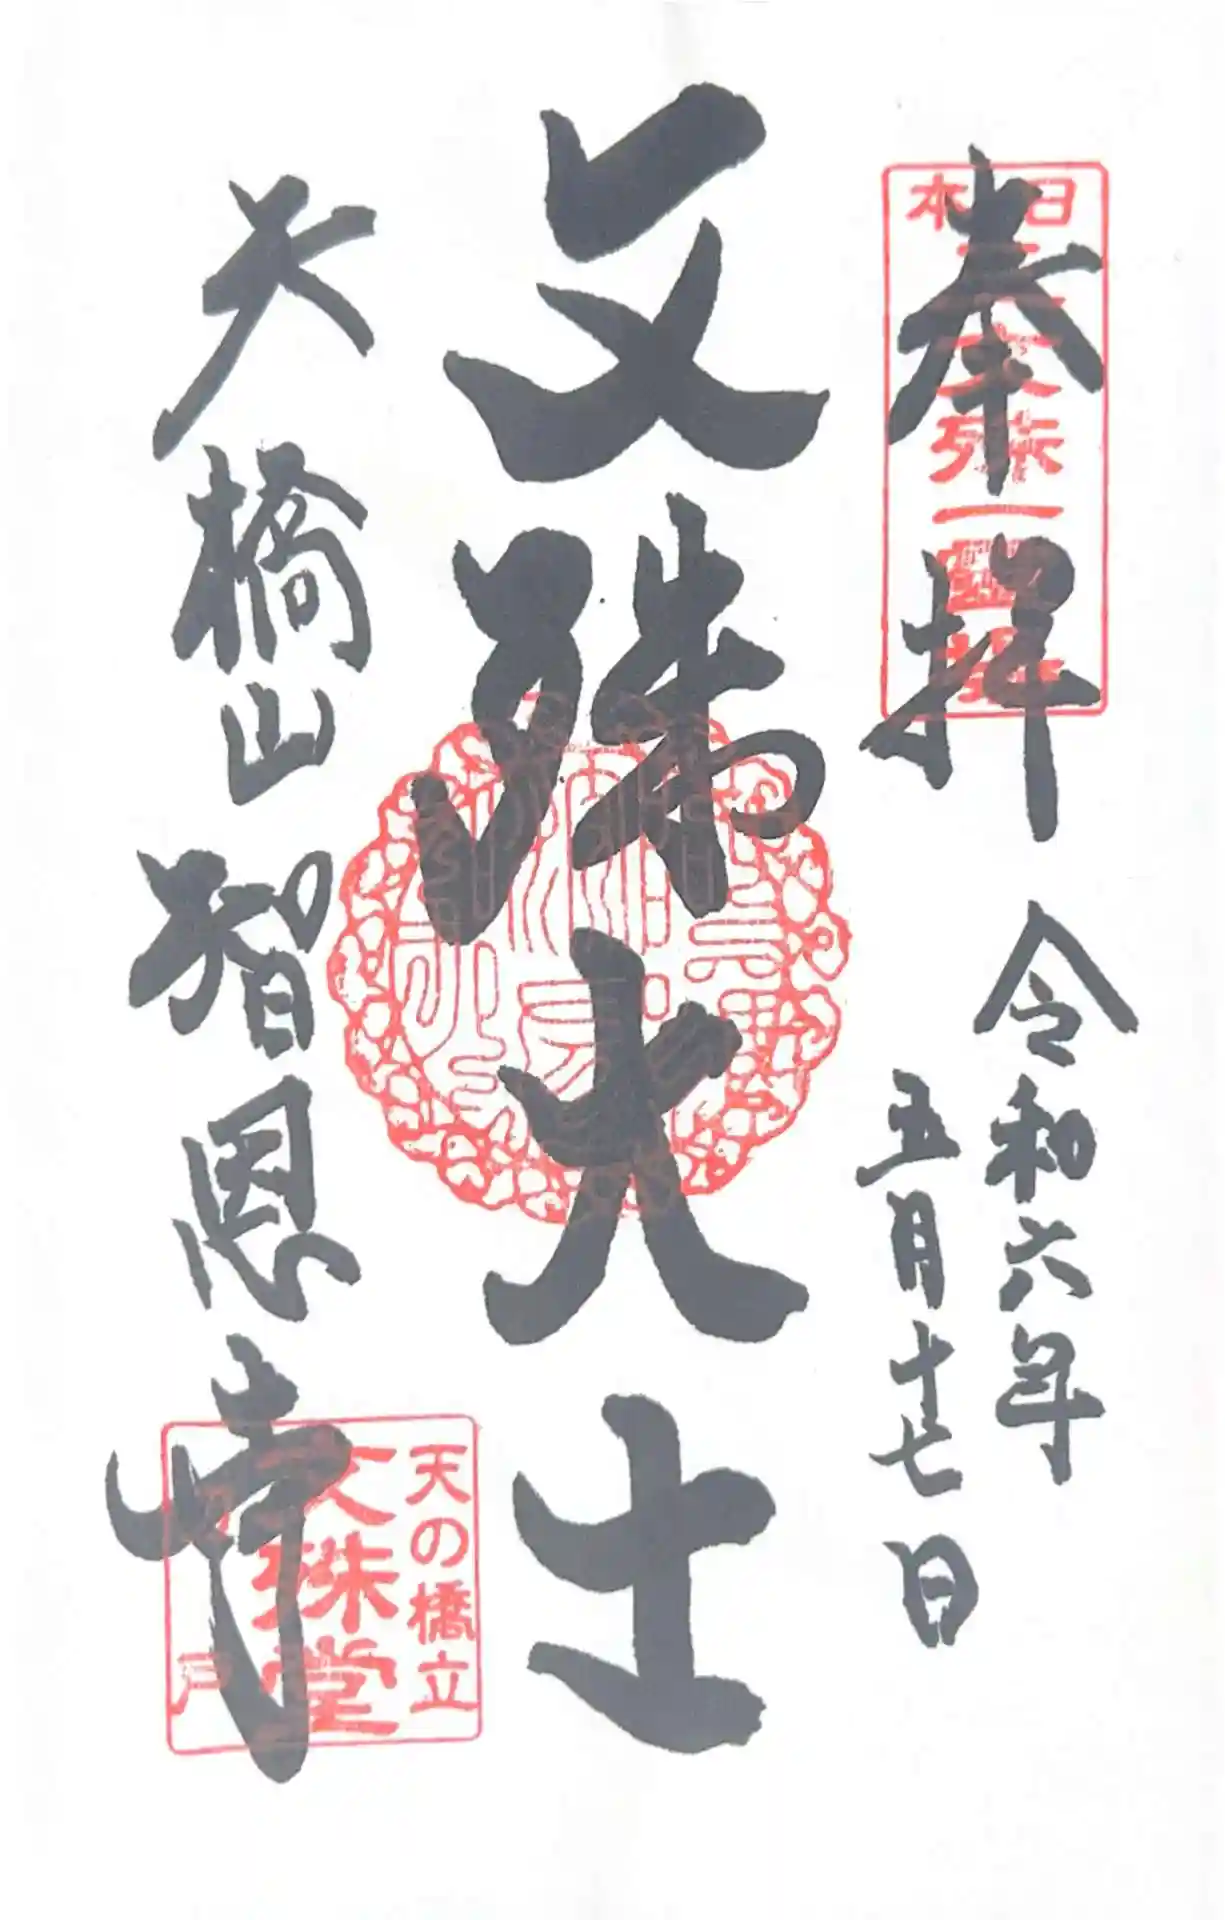 奉拝
日本三文殊一霊場
令和六年
五月十七日
文殊大士
天橋山智恩寺
天の橋立
文殊堂